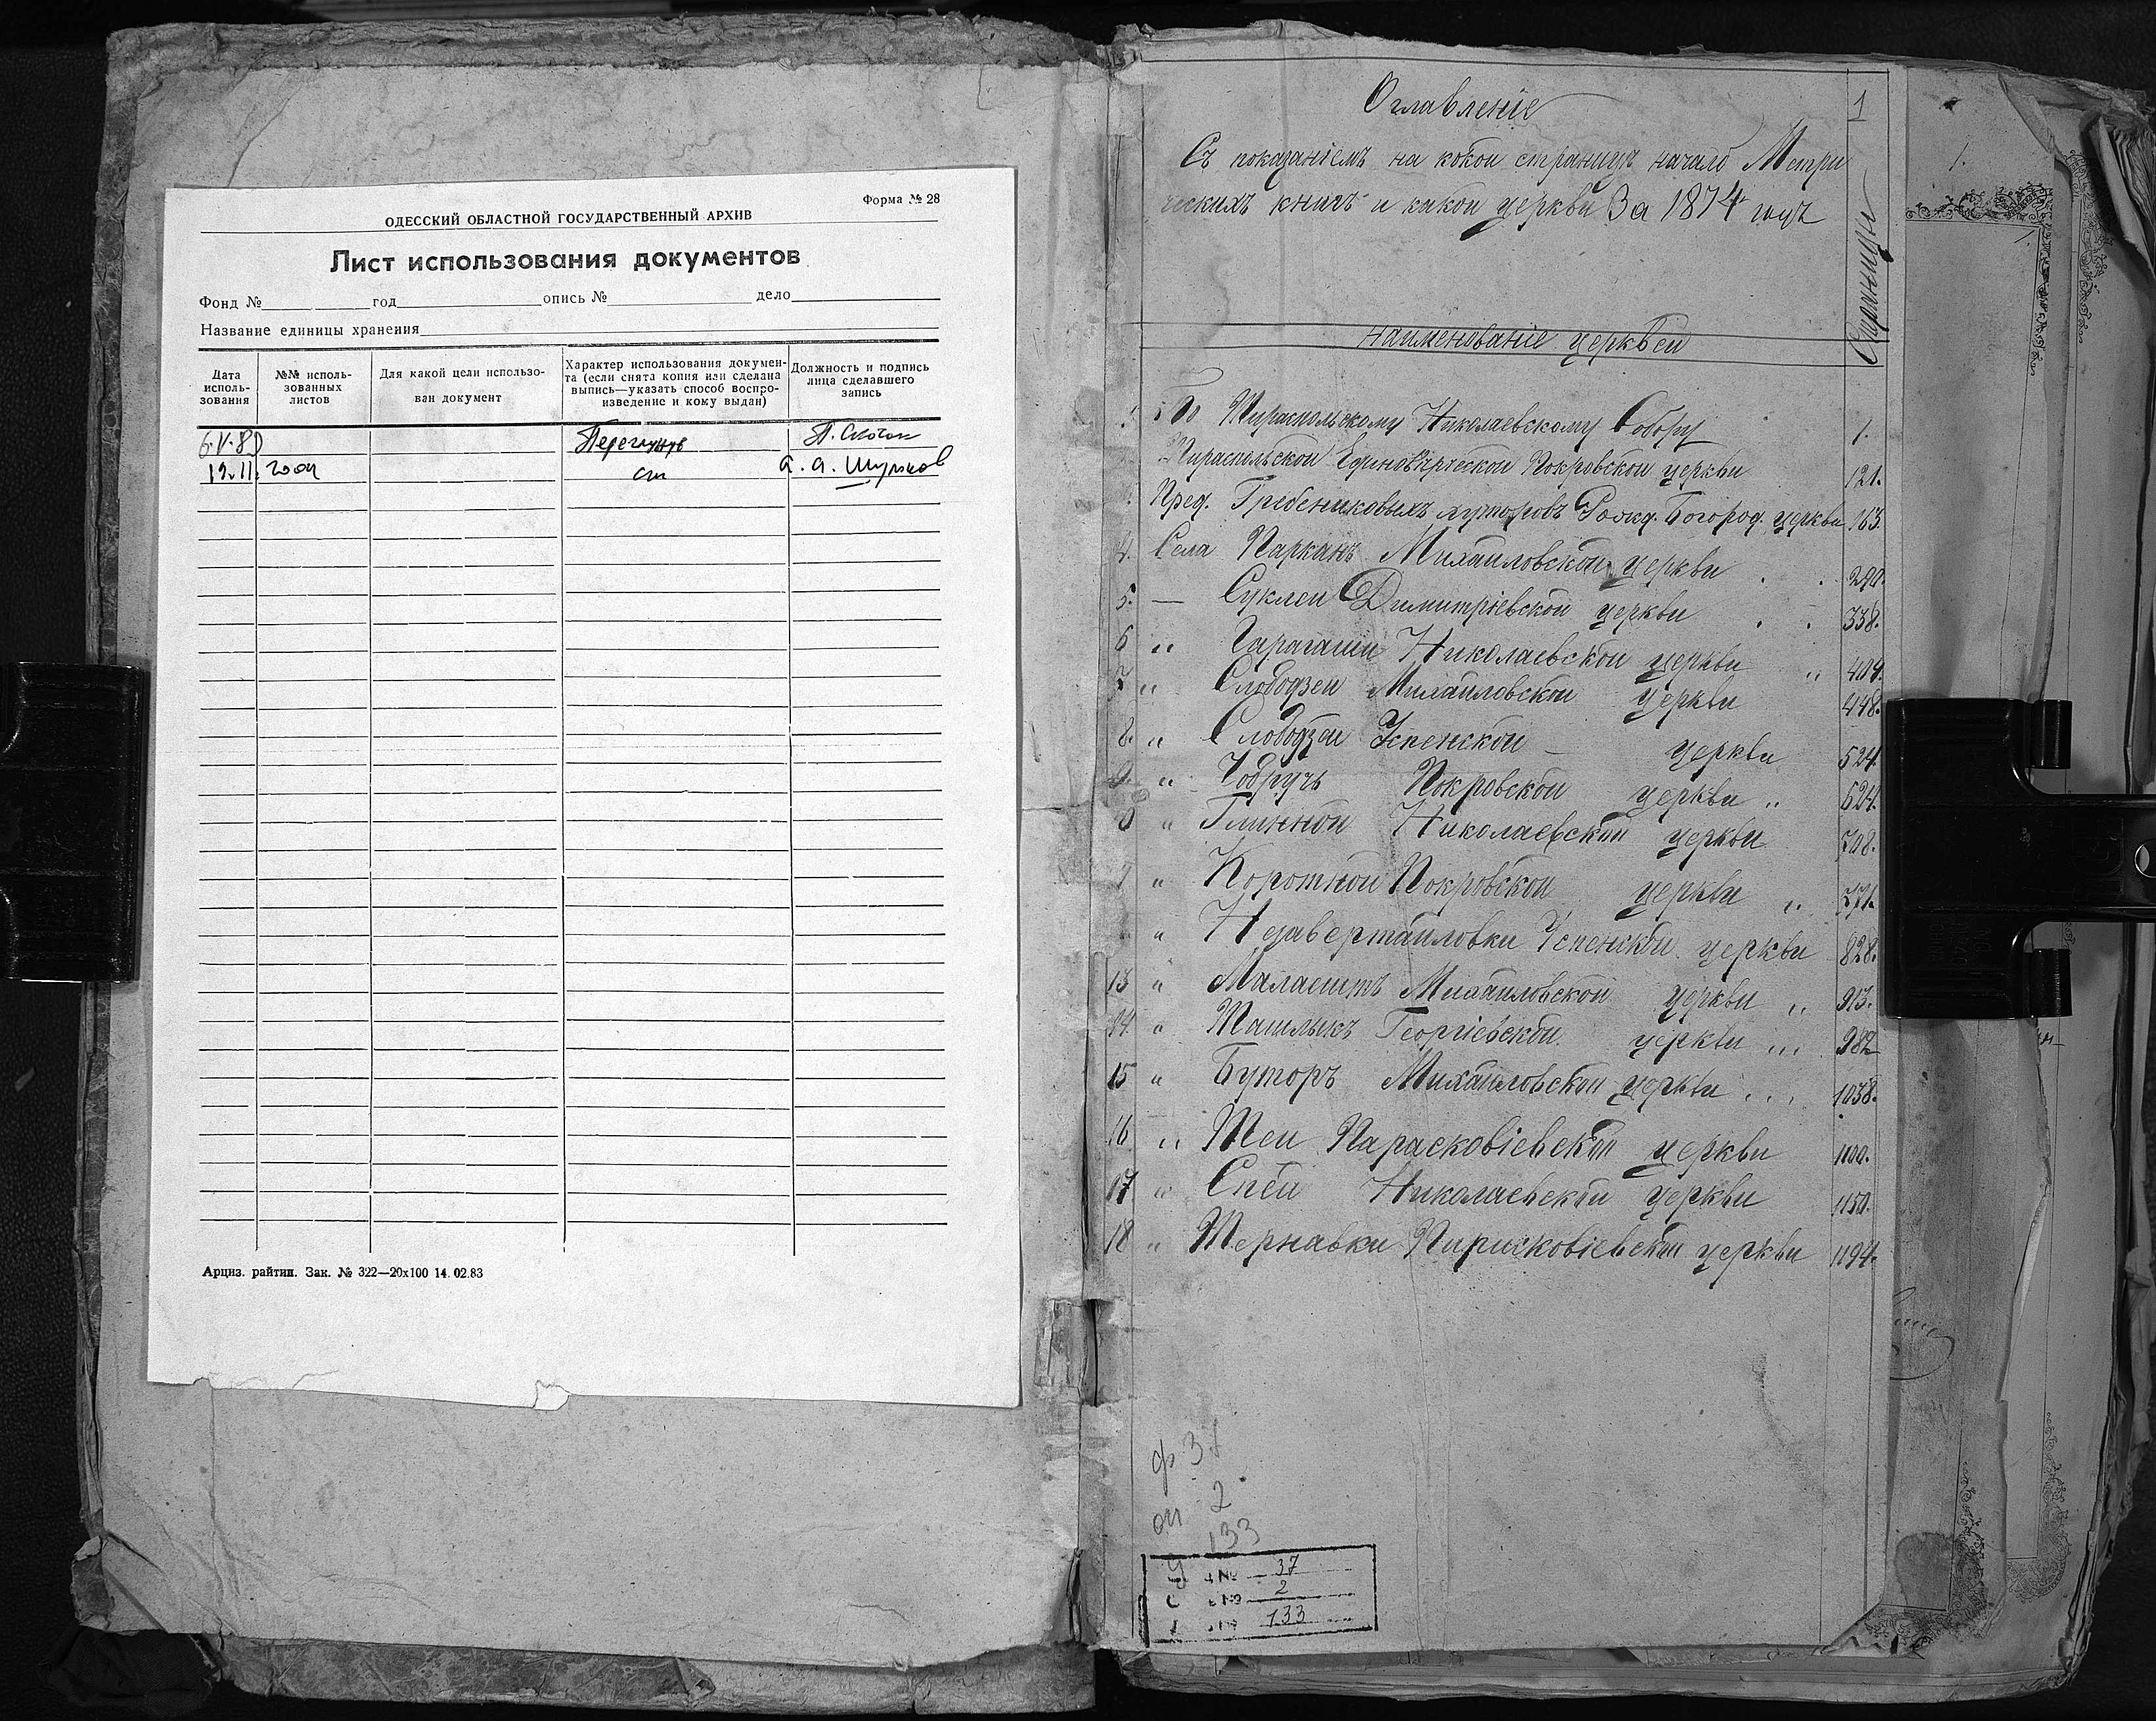 Форма № 28
ОДЕССКИЙ ОБЛАСТНОЙ ГОСУДАРСТВЕННЫЙ АРХИВ
Лист использования документов
Фонд № год опись № дело
Название единицы хранения
Дата исполь-зования
№№ исполь-зованных листов
Для какой цели использо-ван документ
Характер использования докумен-та (если снята копия или сделана выпись—указать способ воспро-изведение и кому выдан)
Должность и подпись лица сделавшего запись
19.11. 2001
Арциз. райтип. Зак. № 322—20х100 14.02.83
1
Оглавленіе
Съ показаніемъ на какой страницѣ начало Метри
ческихъ книгъ и какой церкви За 1874 годъ
Страницы
Наименованіе церквей
По Тираспольскому Николаевскому Собору 1.
Тираспольской Единовѣрческой Покровской церкви 121.
Пред. Гребениковыхъ хуторовъ Рожд. Богород. церкви 163.
4. Села Парканъ Михайловской церкви 290.
5. — Суклеи Димитріевской церкви 338.
6 „ Карагаши Николаевской церкви „ 404.
7 „ Слободзеи Михайловской церкви 448.
8. „ Слободзеи Успенской — церкви 524.
9. „ Чобручь Покровской церкви „ 624.
„ Глинной Николаевской церкви 708.
„ Коротной Покровской церкви „ 771.
„ Незавертайловки Успенской церкви 828.
13 „ Малаештъ Михайловской церкви „ 913.
14. „ Ташлыкъ Георгіевской церкви ... 982
15 „ Буторъ Михайловской церкви ... 1038.
16 „ Теи Парасковіевской церкви 1100.
17 „ Спеи Николаевской церкви 1150.
18 „ Тернавки Парасковіевской церкви 1194.
ф 37
оп 2
133
37
2
133